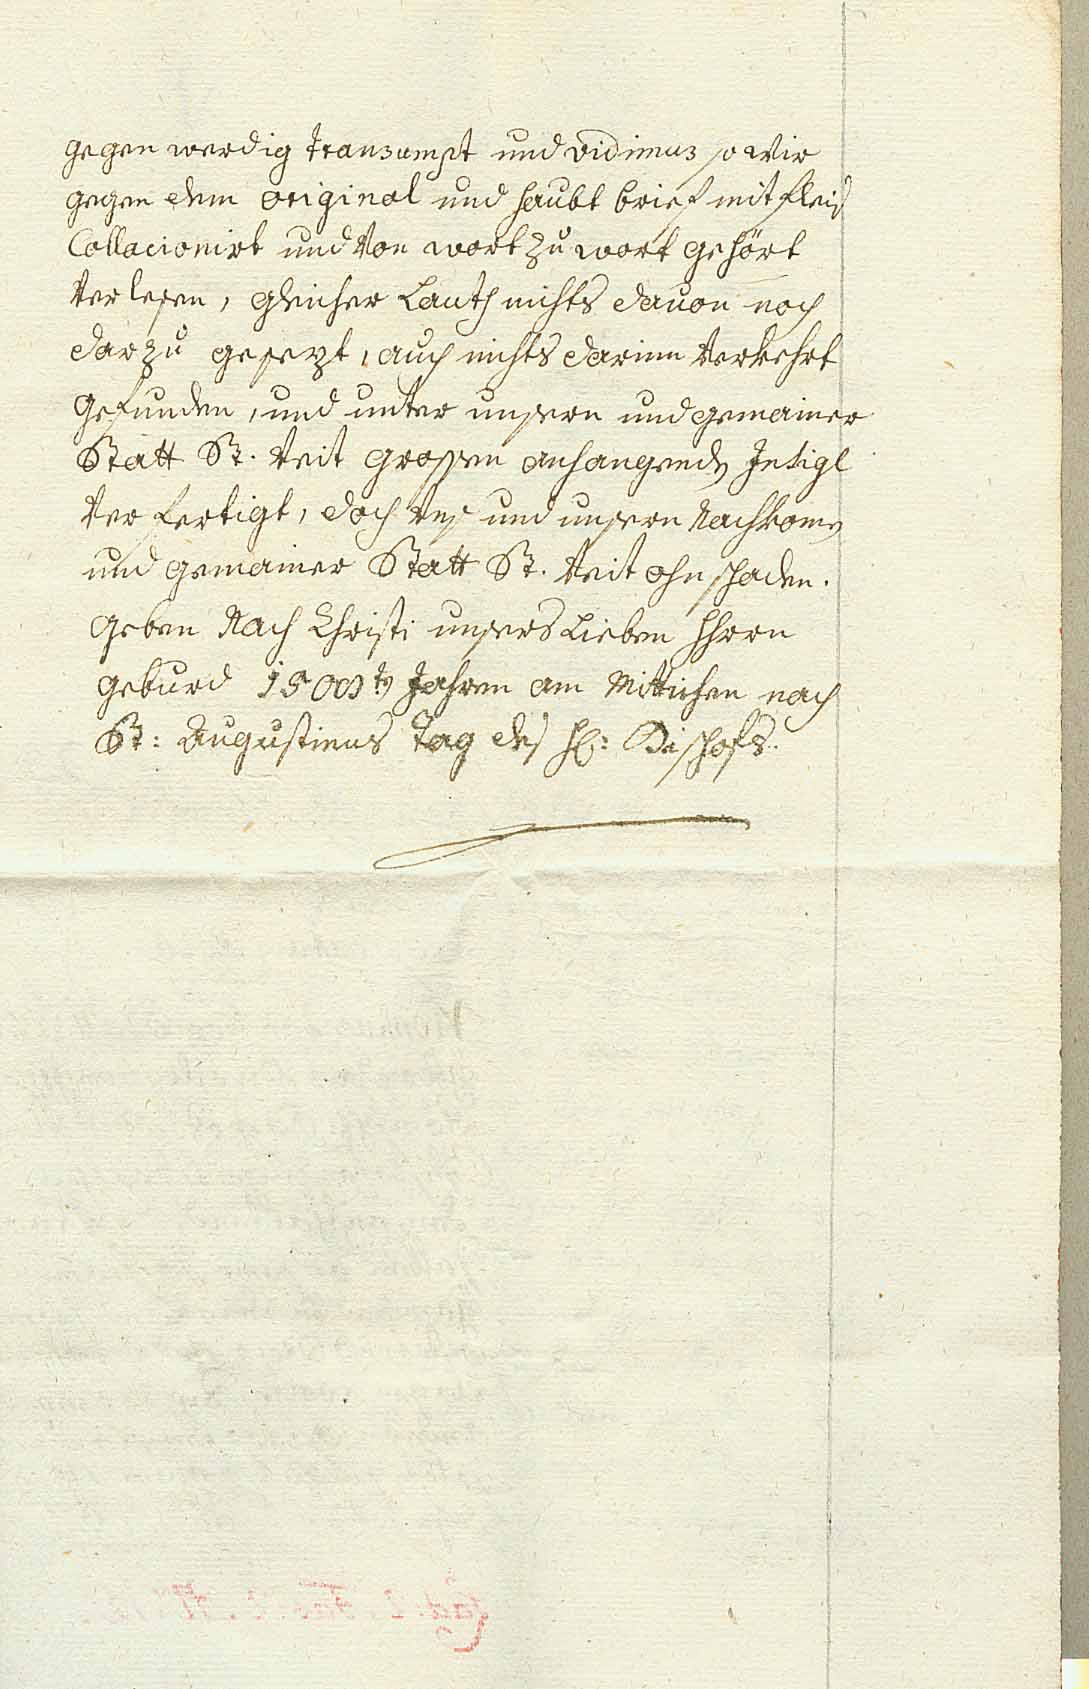 gegen werdig transumpt und vidimus so wir
gegen dem original und haubt brief mit fleis
Collacionirt und von wort zu wort gehört
verlesen, gleicher Lauth nichts dauon noch
darzu gesezt, auch nichts darinn verkehrt
gefunden, und unter unsern und gemainer
Statt St. veit grossen anhangende Insigl
verfertigt, doch uns und unsern Nachkome
und gemainer Statt St. veit ohn schaden.
Geben Nach Christi unsers Lieben Hhrrn
geburd Jahren am Mittichen nach
St: Augustinus Tag des hl: Bischofs.